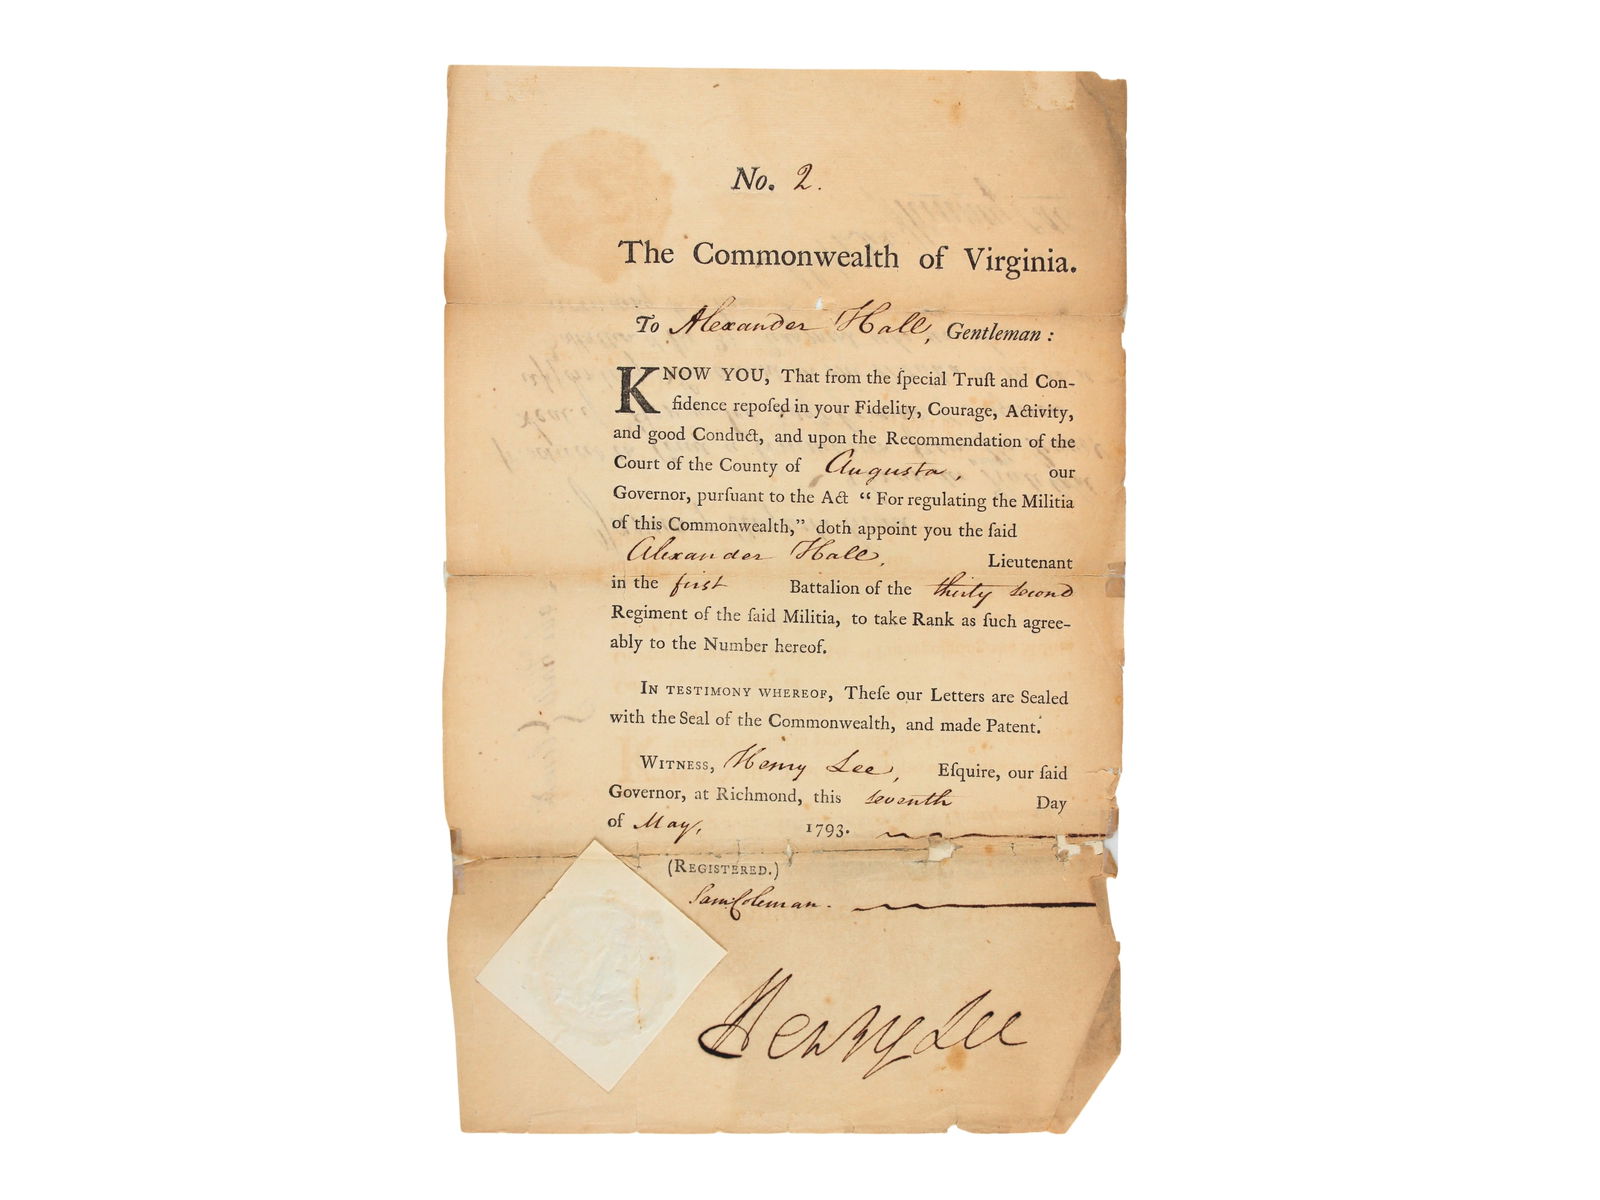 No. 2.
The Commonwealth of Virginia.
To Alexander Hall, Gentleman:
KNOW YOU, That from the ſpecial Truſt and Con-
fidence repoſed in your Fidelity, Courage, Activity,
and good Conduct, and upon the Recommendation of the
Court of the County of Augusta, our
Governor, purſuant to the Act “ For regulating the Militia
of this Commonwealth,” doth appoint you the ſaid
Alexander Hall, Lieutenant
in the first Battalion of the thirty second
Regiment of the ſaid Militia, to take Rank as ſuch agree-
ably to the Number hereof.
IN TESTIMONY WHEREOF, Theſe our Letters are Sealed
with the Seal of the Commonwealth, and made Patent.
WITNESS, Henry Lee, Eſquire, our ſaid
Governor, at Richmond, this seventh Day
of May, 1793.
(REGISTERED.)
Sam Coleman.
Henry Lee